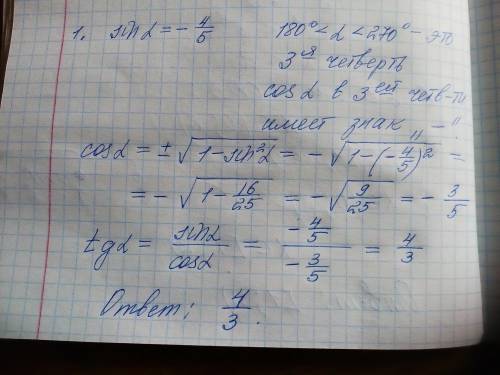 1. sin α = - 4/5   180° < α < 270° - это
3ья четверть
cos α в 3ей четв-ти
имеет знак „-"
cos α = ± √(1 - sin²α) = - √(1 - (-4/5)²) =
= - √(1 - 16/25) = - √(9/25) = - 3/5
tg α = sin α / cos α = (- 4/5) / (- 3/5) = 4/3
Ответ: 4/3.